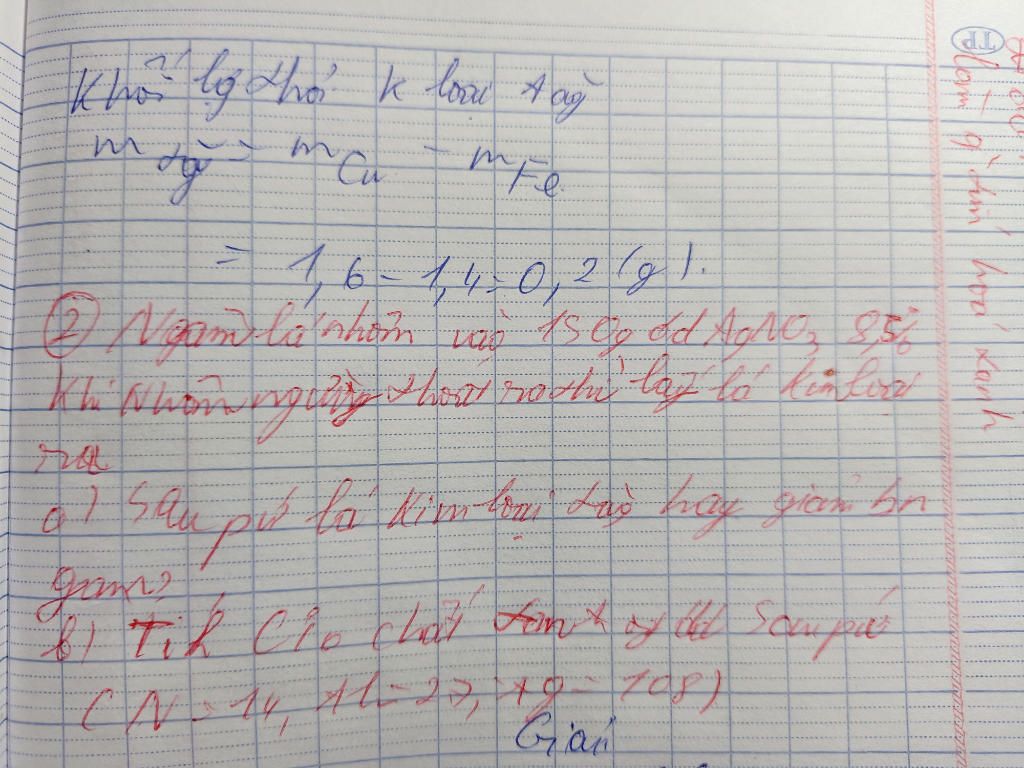 Khối lg thỏi k loại tăg
m tăg = m Cu - m Fe
= 1,6 - 1,4 = 0,2 (g).
② Ngâm lá nhôm vào 150g dd AgNO3 8,5%
Khi nhôm ngừng thoát ra thì lấy lá kim loại
ra
a) Sau pứ lá kim loại tăg hay giảm bn
gam?
b) Tíh C% chất dd sau pứ
(N = 14, Al = 27, Ag = 108)
Giải
TP
hoá xanh